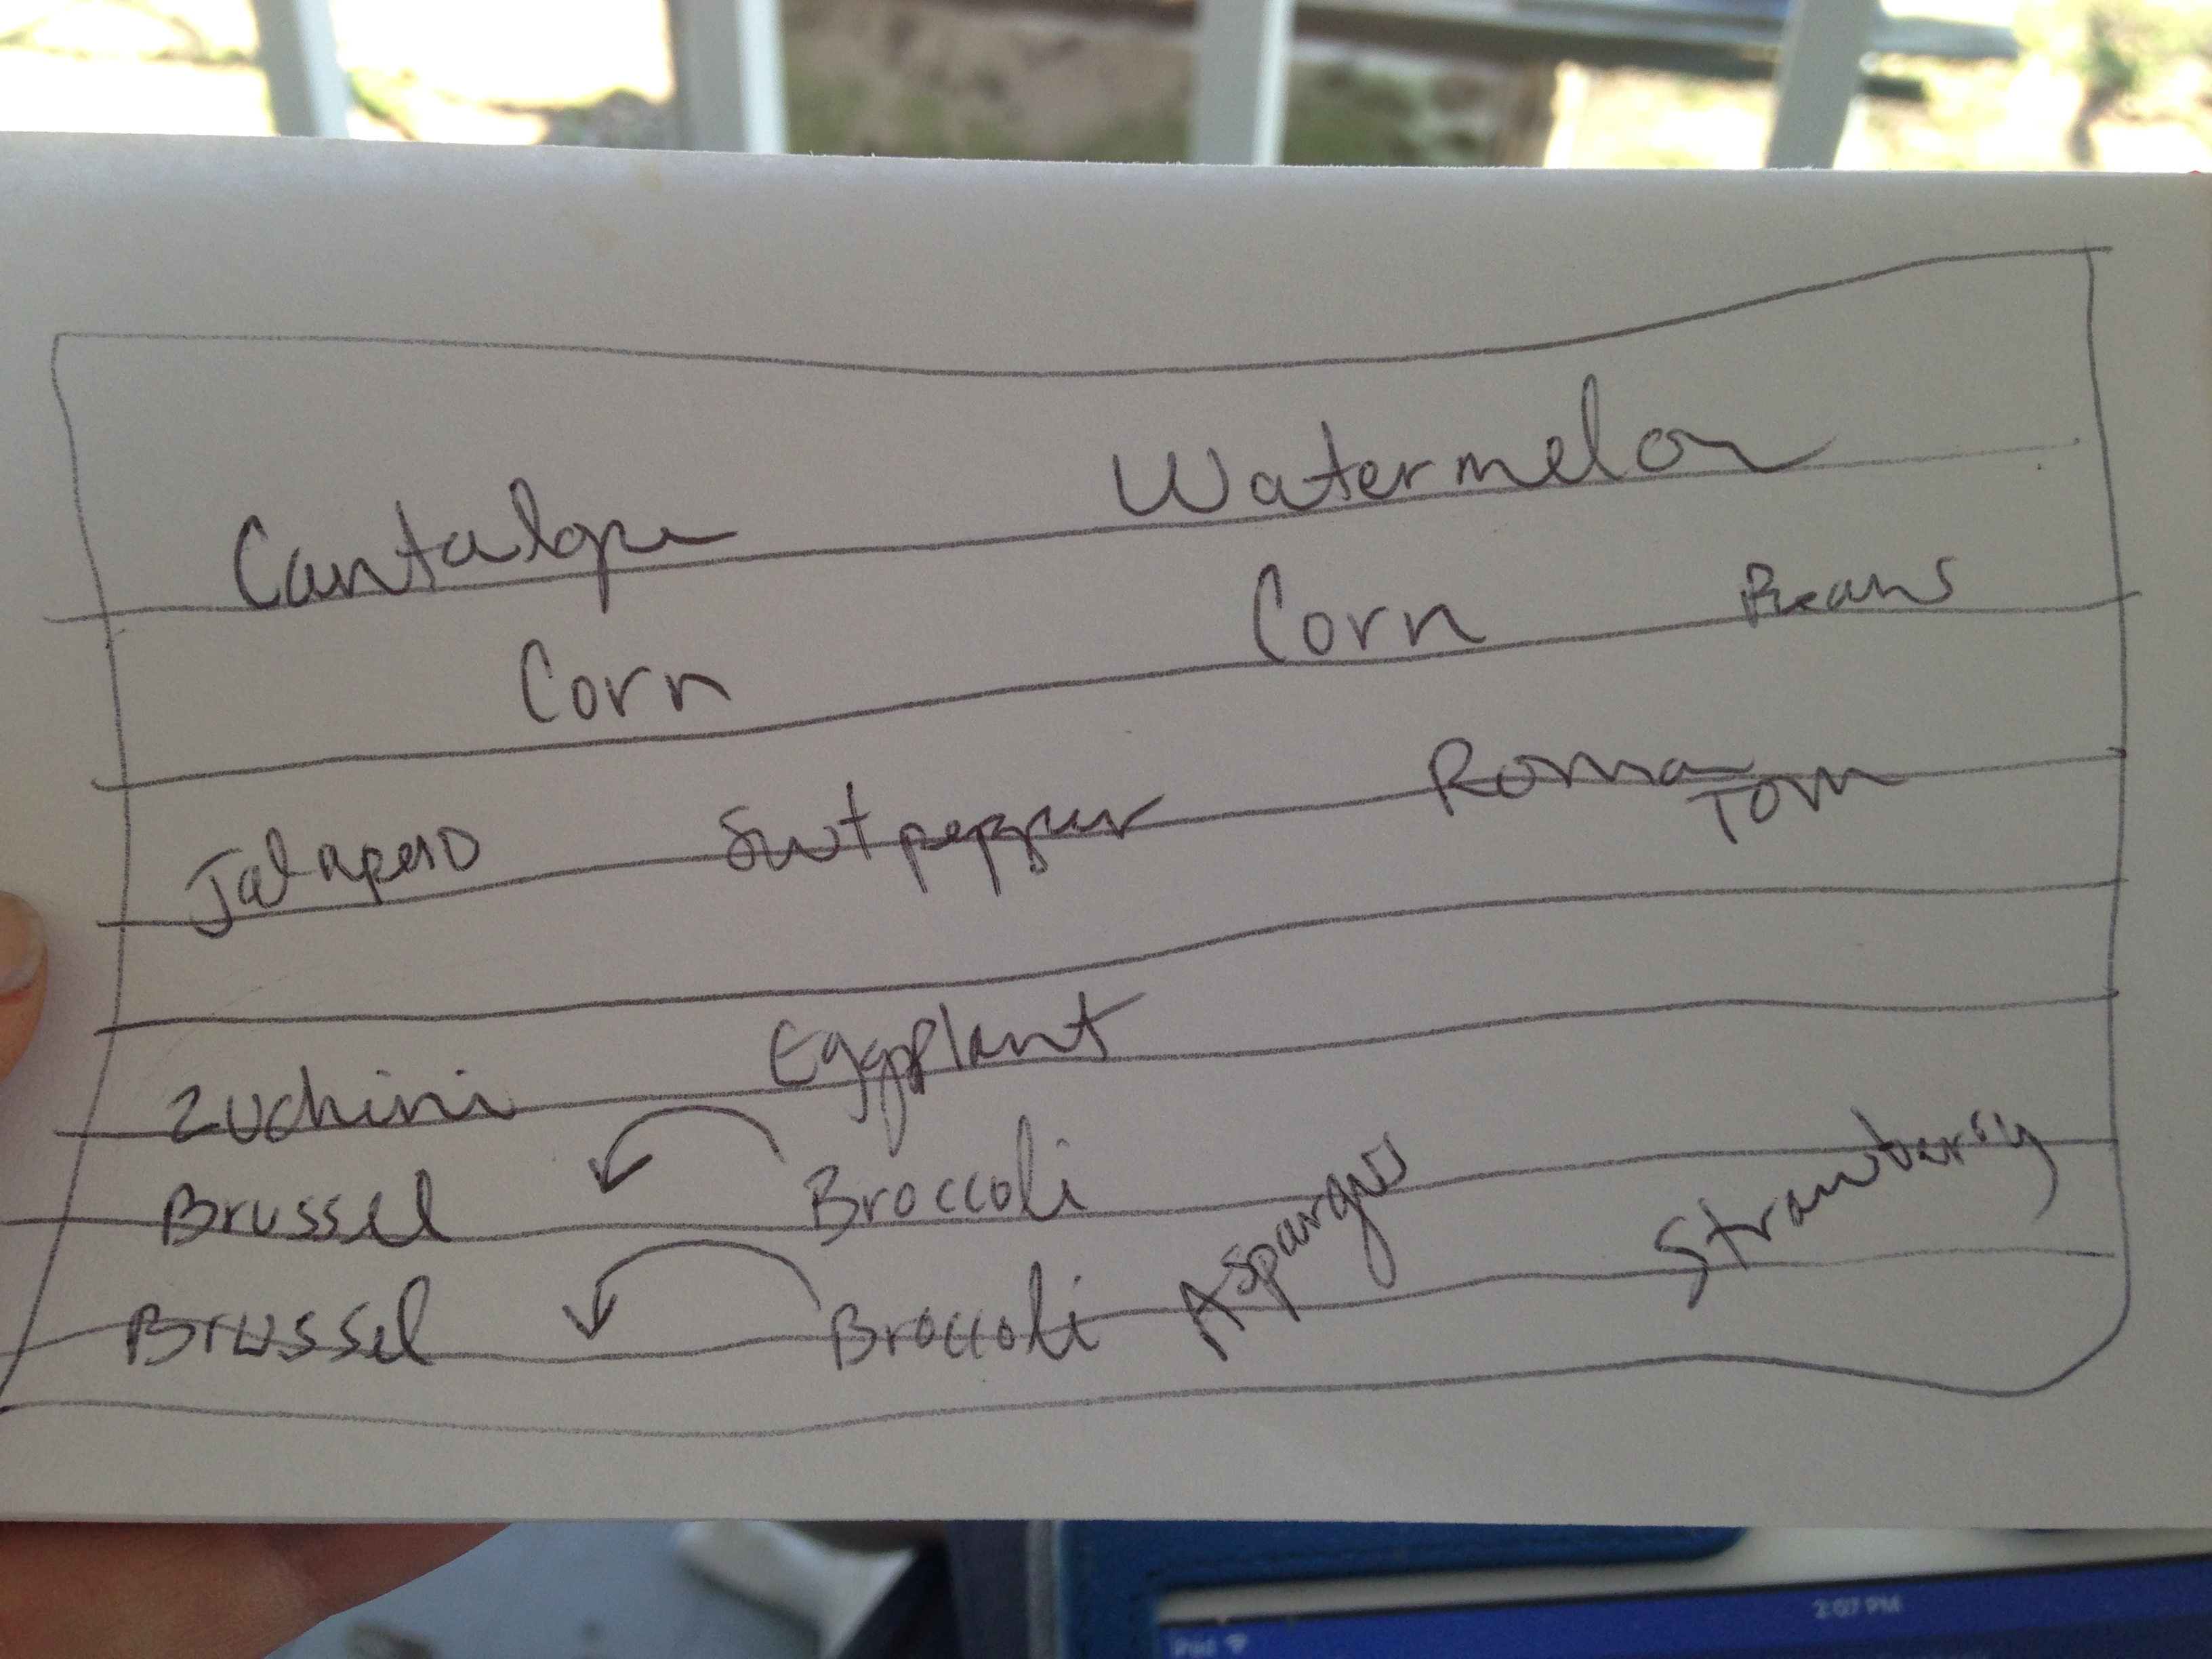 Cantalope Watermelon
Corn Corn Beans
Jalapeno Swtpepper Roma
Tom
Zuchini Eggplant
Brussel Broccoli Aspargus Strawberry
Brussel Broccoli
2:07 PM
iPad